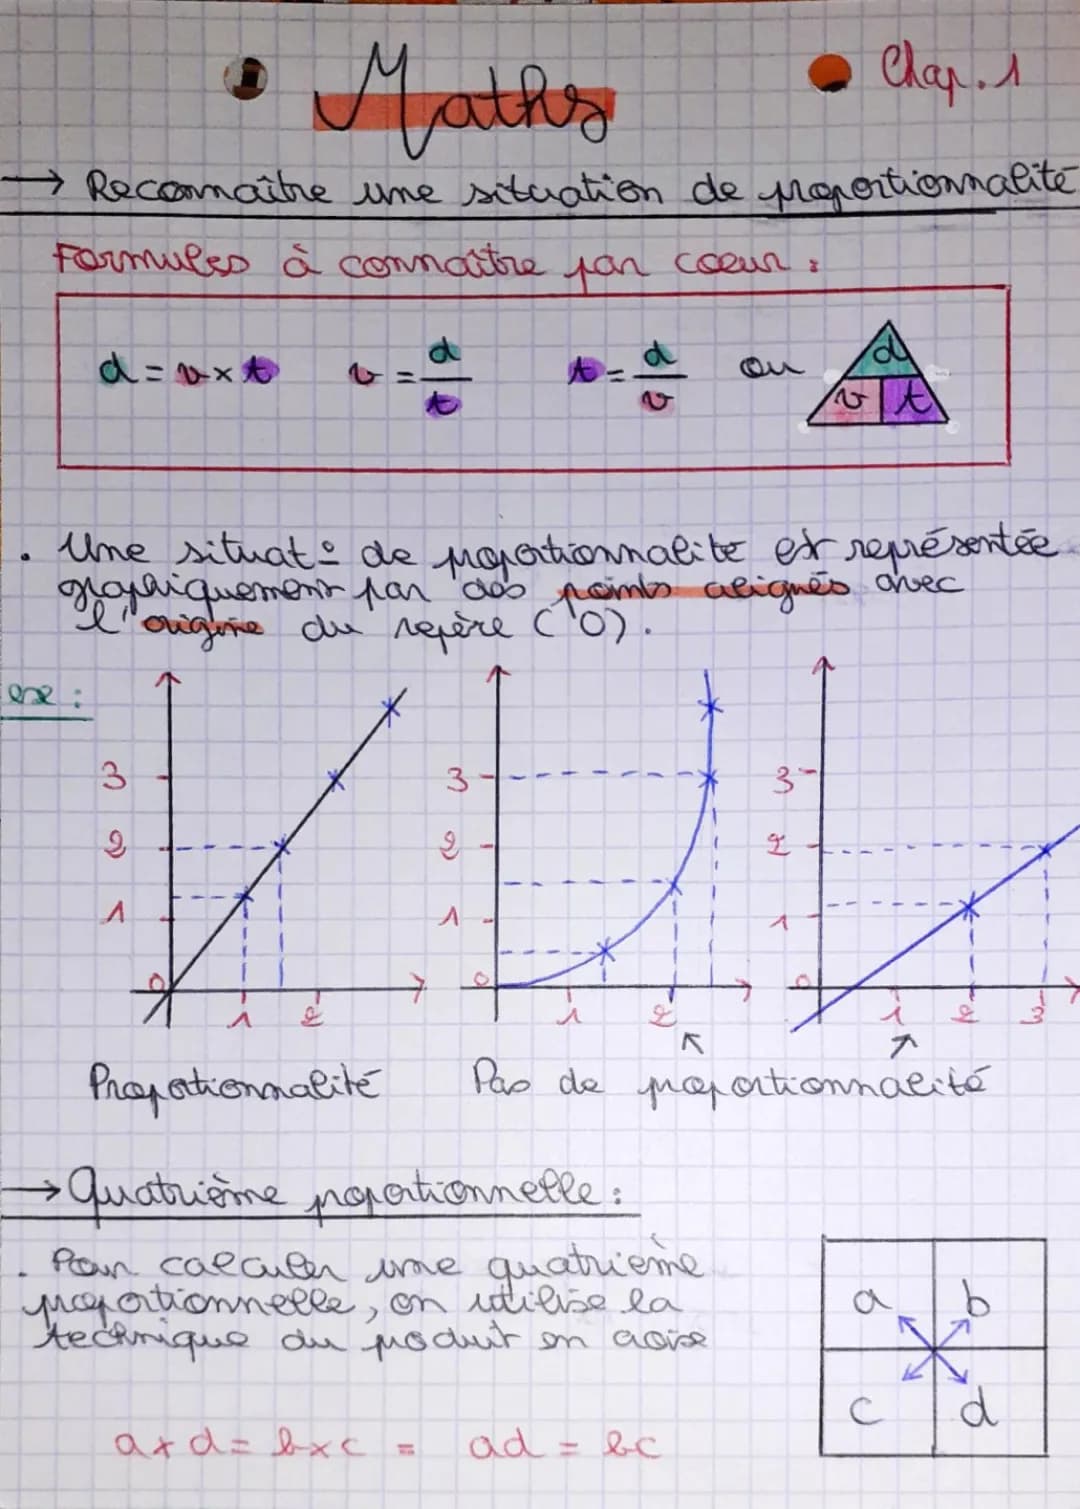 Maths
Chap. 1
→ Reconnaître une situation de proportionnalité
Formules à connaître par coeur :
d = v × t v = d/t t = d/v ou d v t
. Une situat° de proportionnalité est représentée
graphiquement par des points alignés avec
l'origine du repère (0).
ex :
3 3 3
2 2 2
1 1 1
0 0 0
1 2 1 2 1 2 3
Proportionnalité Pas de proportionnalité
→ Quatrième proportionnelle :
. Pour calculer une quatrième
proportionnelle, on utilise la
technique du produit en croix
a b
c d
a × d = b × c = ad = bc